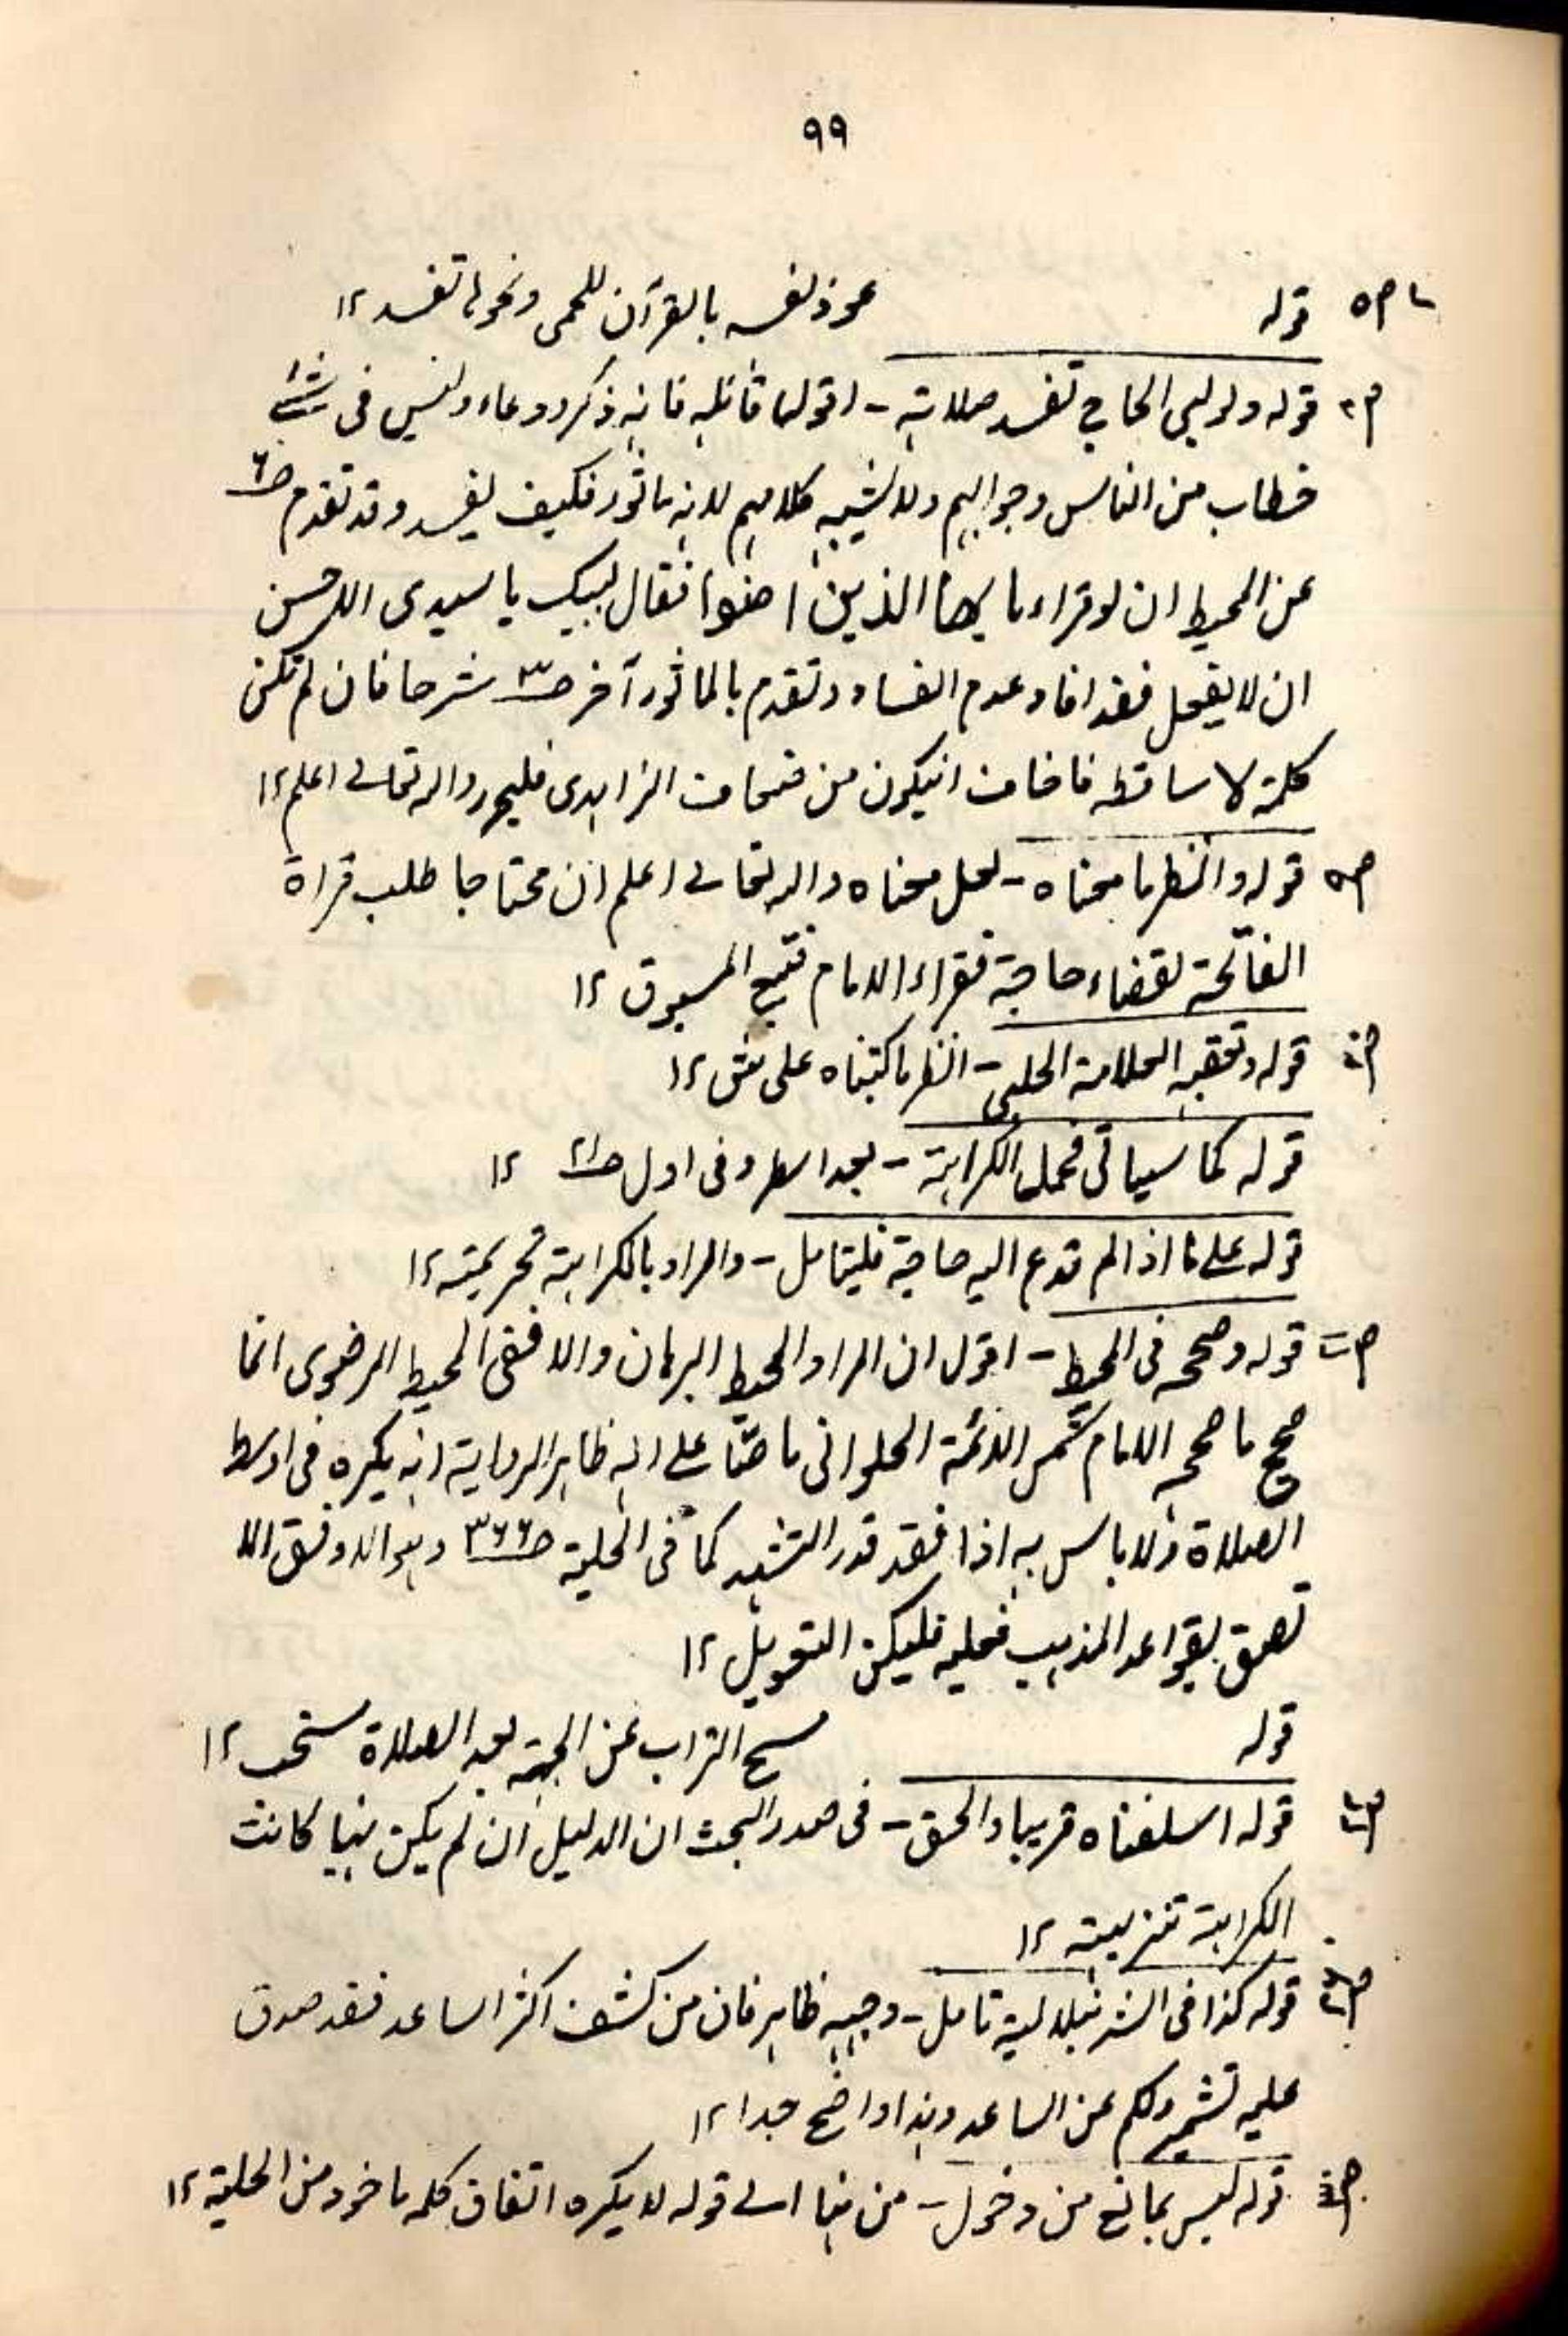 ٩٩
قوله عوذ نفسه بالقرآن للحمى ونحوها تفسد ١٢
قوله ولو لبى الحاج تفسد صلاته - اقول ما قائله فانه ذكر ودعاء وليس فى شئ
خطاب من الناس وجوابهم ولا يشبه كلامهم لانه ماثور فكيف يفسد وقد تقدم ص٦
عن المحيط ان لو قراء يايها الذين امنوا فقال لبيك يا سيدى الاحسن
ان لا يفعل فقد افاد عدم الفساد وتقدم بالماثور آخر ص٣ شرحا فان لم تكن
كلمة لا ساقطه فاخاف انيكون من الزاهدى فليحرر والله تعالى اعلم ١٢
قوله وانظر ما معناه - لعل معناه والله تعالى اعلم ان محتاجا طلب قراة
الفاتحة لقضاء حاجة فقراء الامام المسبوق ١٢
قوله وتعقبه العلامة الحلبى - انظر ما كتبناه على ١٢
قوله كما سياتى فحمل الكراهة - بعد اسطر وفى اول ص٢١ ١٢
قوله على ما اذا لم تدع اليه حاجة فليتامل - والمراد بالكراهة تحريمية ١٢
قوله وصححه فى المحيط - اقول ان المراد المحيط البرهان والا ففى المحيط الرضوى انما
صحح ما صححه الامام شمس الائمة الحلوانى ناصا على انه ظاهر الرواية انه يكره فى اوسط
الصلاة ولا باس به اذا قعد قدر التشهد كما فى الحلية ص٣٦٦ وهو الاوفق الا
لصق بقواعد المذهب فعليه فليكن التعويل ١٢
قوله مسح التراب عن الجبهة بعد الصلاة مستحب ١٢
قوله اسلفناه قريبا والحق - فى صدر البحث ان الدليل ان لم يكن نهيا كانت
الكراهة تنزيهية ١٢
قوله كذا فى الشرنبلالية تامل - وجهه ظاهر فان من كشف اكثر الساعد فقد صدق
عليه تشمير كم عن الساعد وهذا واضح جدا ١٢
قوله ليس بمانع من دخول - من هنا الى قوله لا يكره اتفاق كله ماخوذ من الحلية ١٢